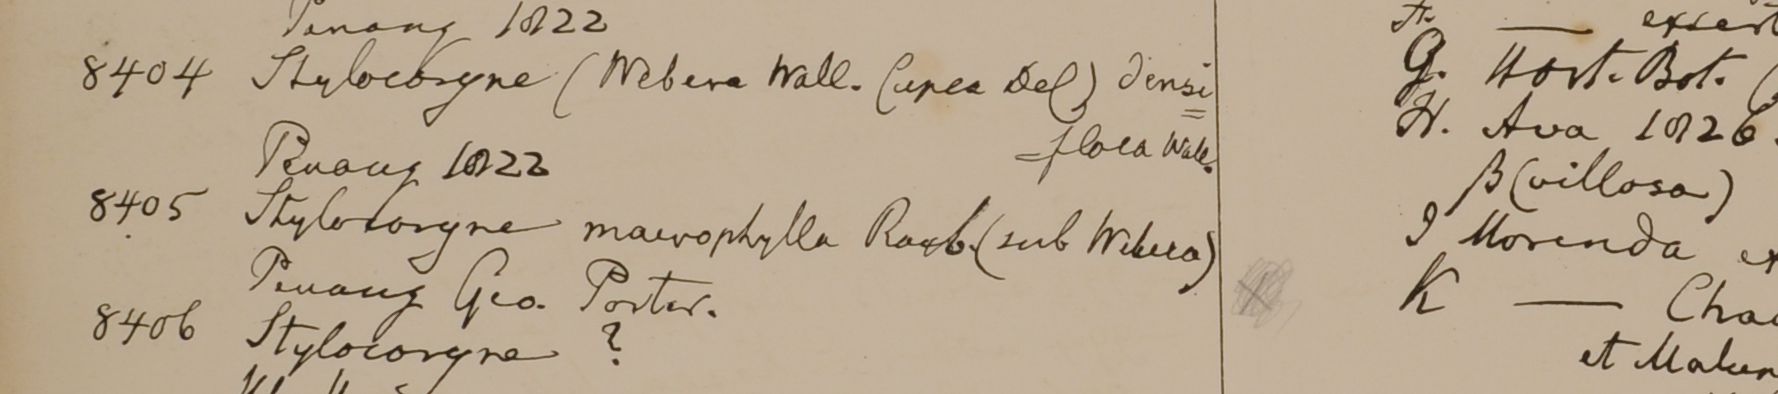 Penang 1822
8404 Stylocoryne (Webera Wall. Cupea Del) densi
=flora Wall.
Penang 1822
8405 Stylocoryne macrophylla Roxb. (sub Webera)
Penang Geo. Porter.
8406 Stylocoryne ?
F. — exsert
G. Hort. Bot. (
H. Ava 1826.
β (villosa)
I Morinda ex
K — Cha
et Malun